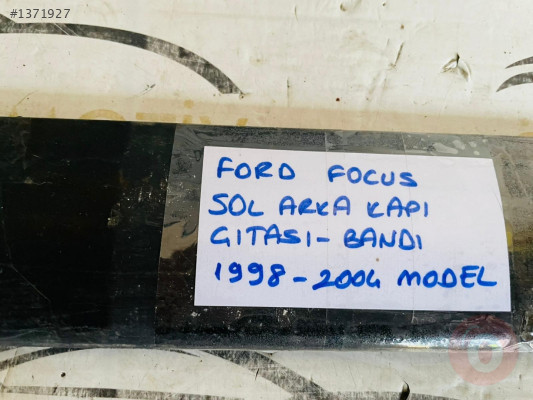 #1371927
FORD FOCUS
SOL ARKA KAPI
GITASI-BANDI
1998-2004 MODEL